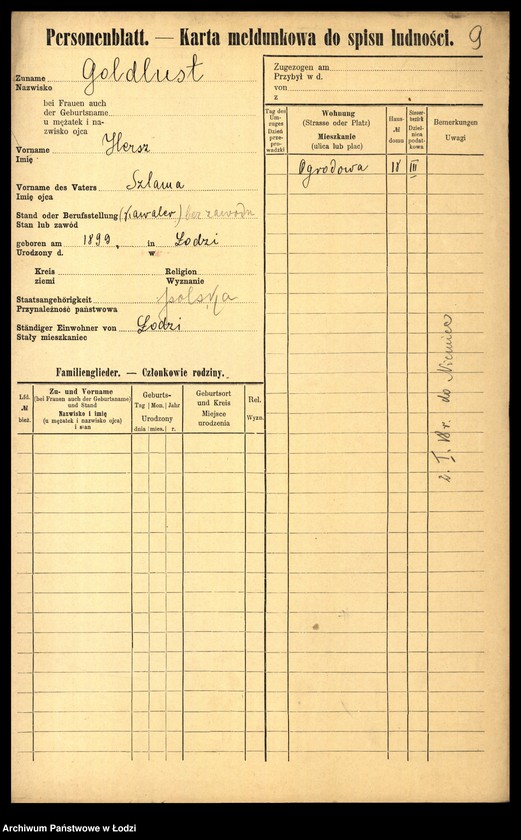 Personenblatt. — Karta meldunkowa do spisu ludności. 9
Zuname Goldlust
Nazwisko
bei Frauen auch
der Geburtsname
u mężatek i na-
zwisko ojca
Vorname Hersz
Imię
Vorname des Vaters Szlama
Imię ojca
Stand oder Berufsstellung (kawaler) bez zawodu
Stan lub zawód
geboren am 1899, in Łodzi
Urodzony d. w
Kreis Religion
ziemi Wyznanie
Staatsangehörigkeit polska
Przynależność państwowa
Ständiger Einwohner von Łodzi
Stały mieszkaniec
Familienglieder. — Członkowie rodziny.
Lfd. № bież.
Zu- und Vorname
(bei Frauen auch der Geburtsname)
und Stand
Nazwisko i imię
(u mężatek i nazwisko ojca)
i stan
Geburts-
Tag Mon. Jahr
Urodzony
dnia mies. r.
Geburtsort
und Kreis
Miejsce
urodzenia
Rel.
Wyzn.
Zugezogen am
Przybył w d.
von
z
Tag des
Um-
zuges
Dzień
prze-
prowadzki
Wohnung
(Strasse oder Platz)
Mieszkanie
(ulica lub plac)
Haus-
№
domu
Steuer-
bezirk
Dziel-
nica
podat-
kowa
Bemerkungen
Uwagi
Ogrodowa 18 III
do Niemiec
Archiwum Państwowe w Łodzi